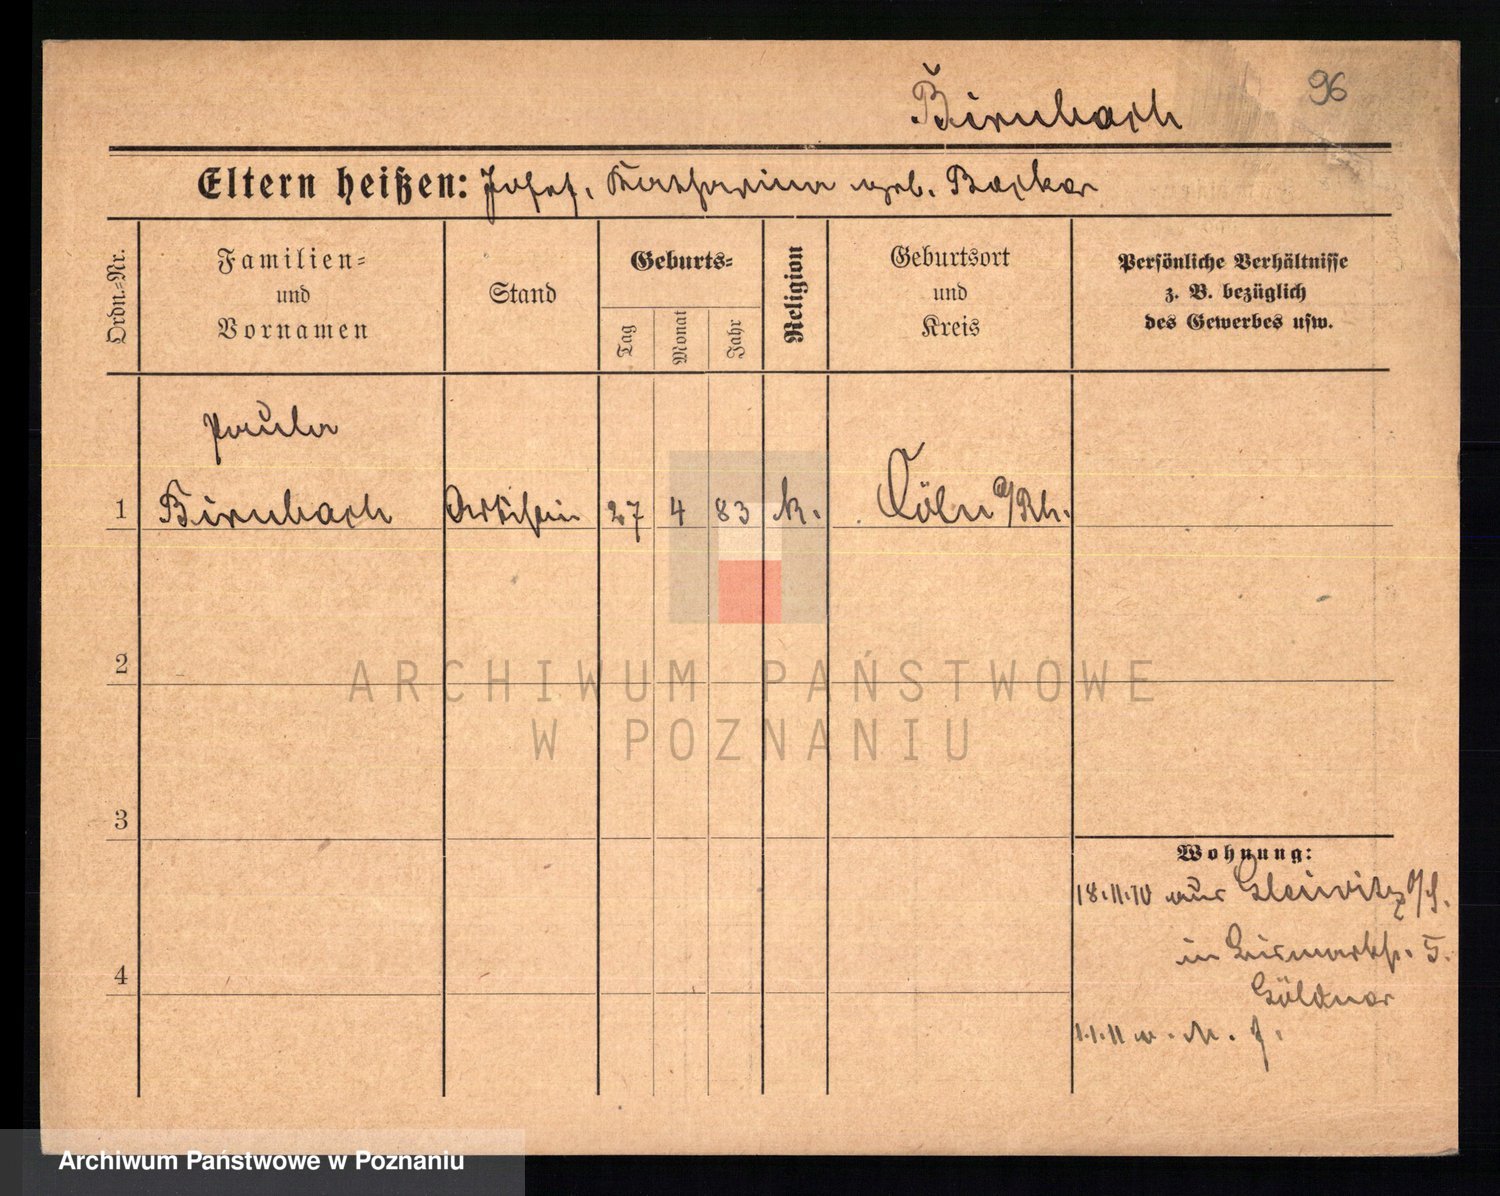 96
Birnbach
Eltern heißen: Josef, Katharina geb. Becker
Ordn.-Nr.
Familien-
und
Vornamen
Stand
Geburts-
Tag
Monat
Jahr
Religion
Geburtsort
und
Kreis
Persönliche Verhältnisse
z. B. bezüglich
des Gewerbes usw.
Paula
1 Birnbach Artistin 27 4 83 k. Cöln a/Rh.
2
ARCHIWUM PAŃSTWOWE
W POZNANIU
3
Wohnung:
18.11.10 aus Gleiwitz O/S.
in Bismarckstr. 5.
4
Göldner
1.1.11 n. M.
Archiwum Państwowe w Poznaniu